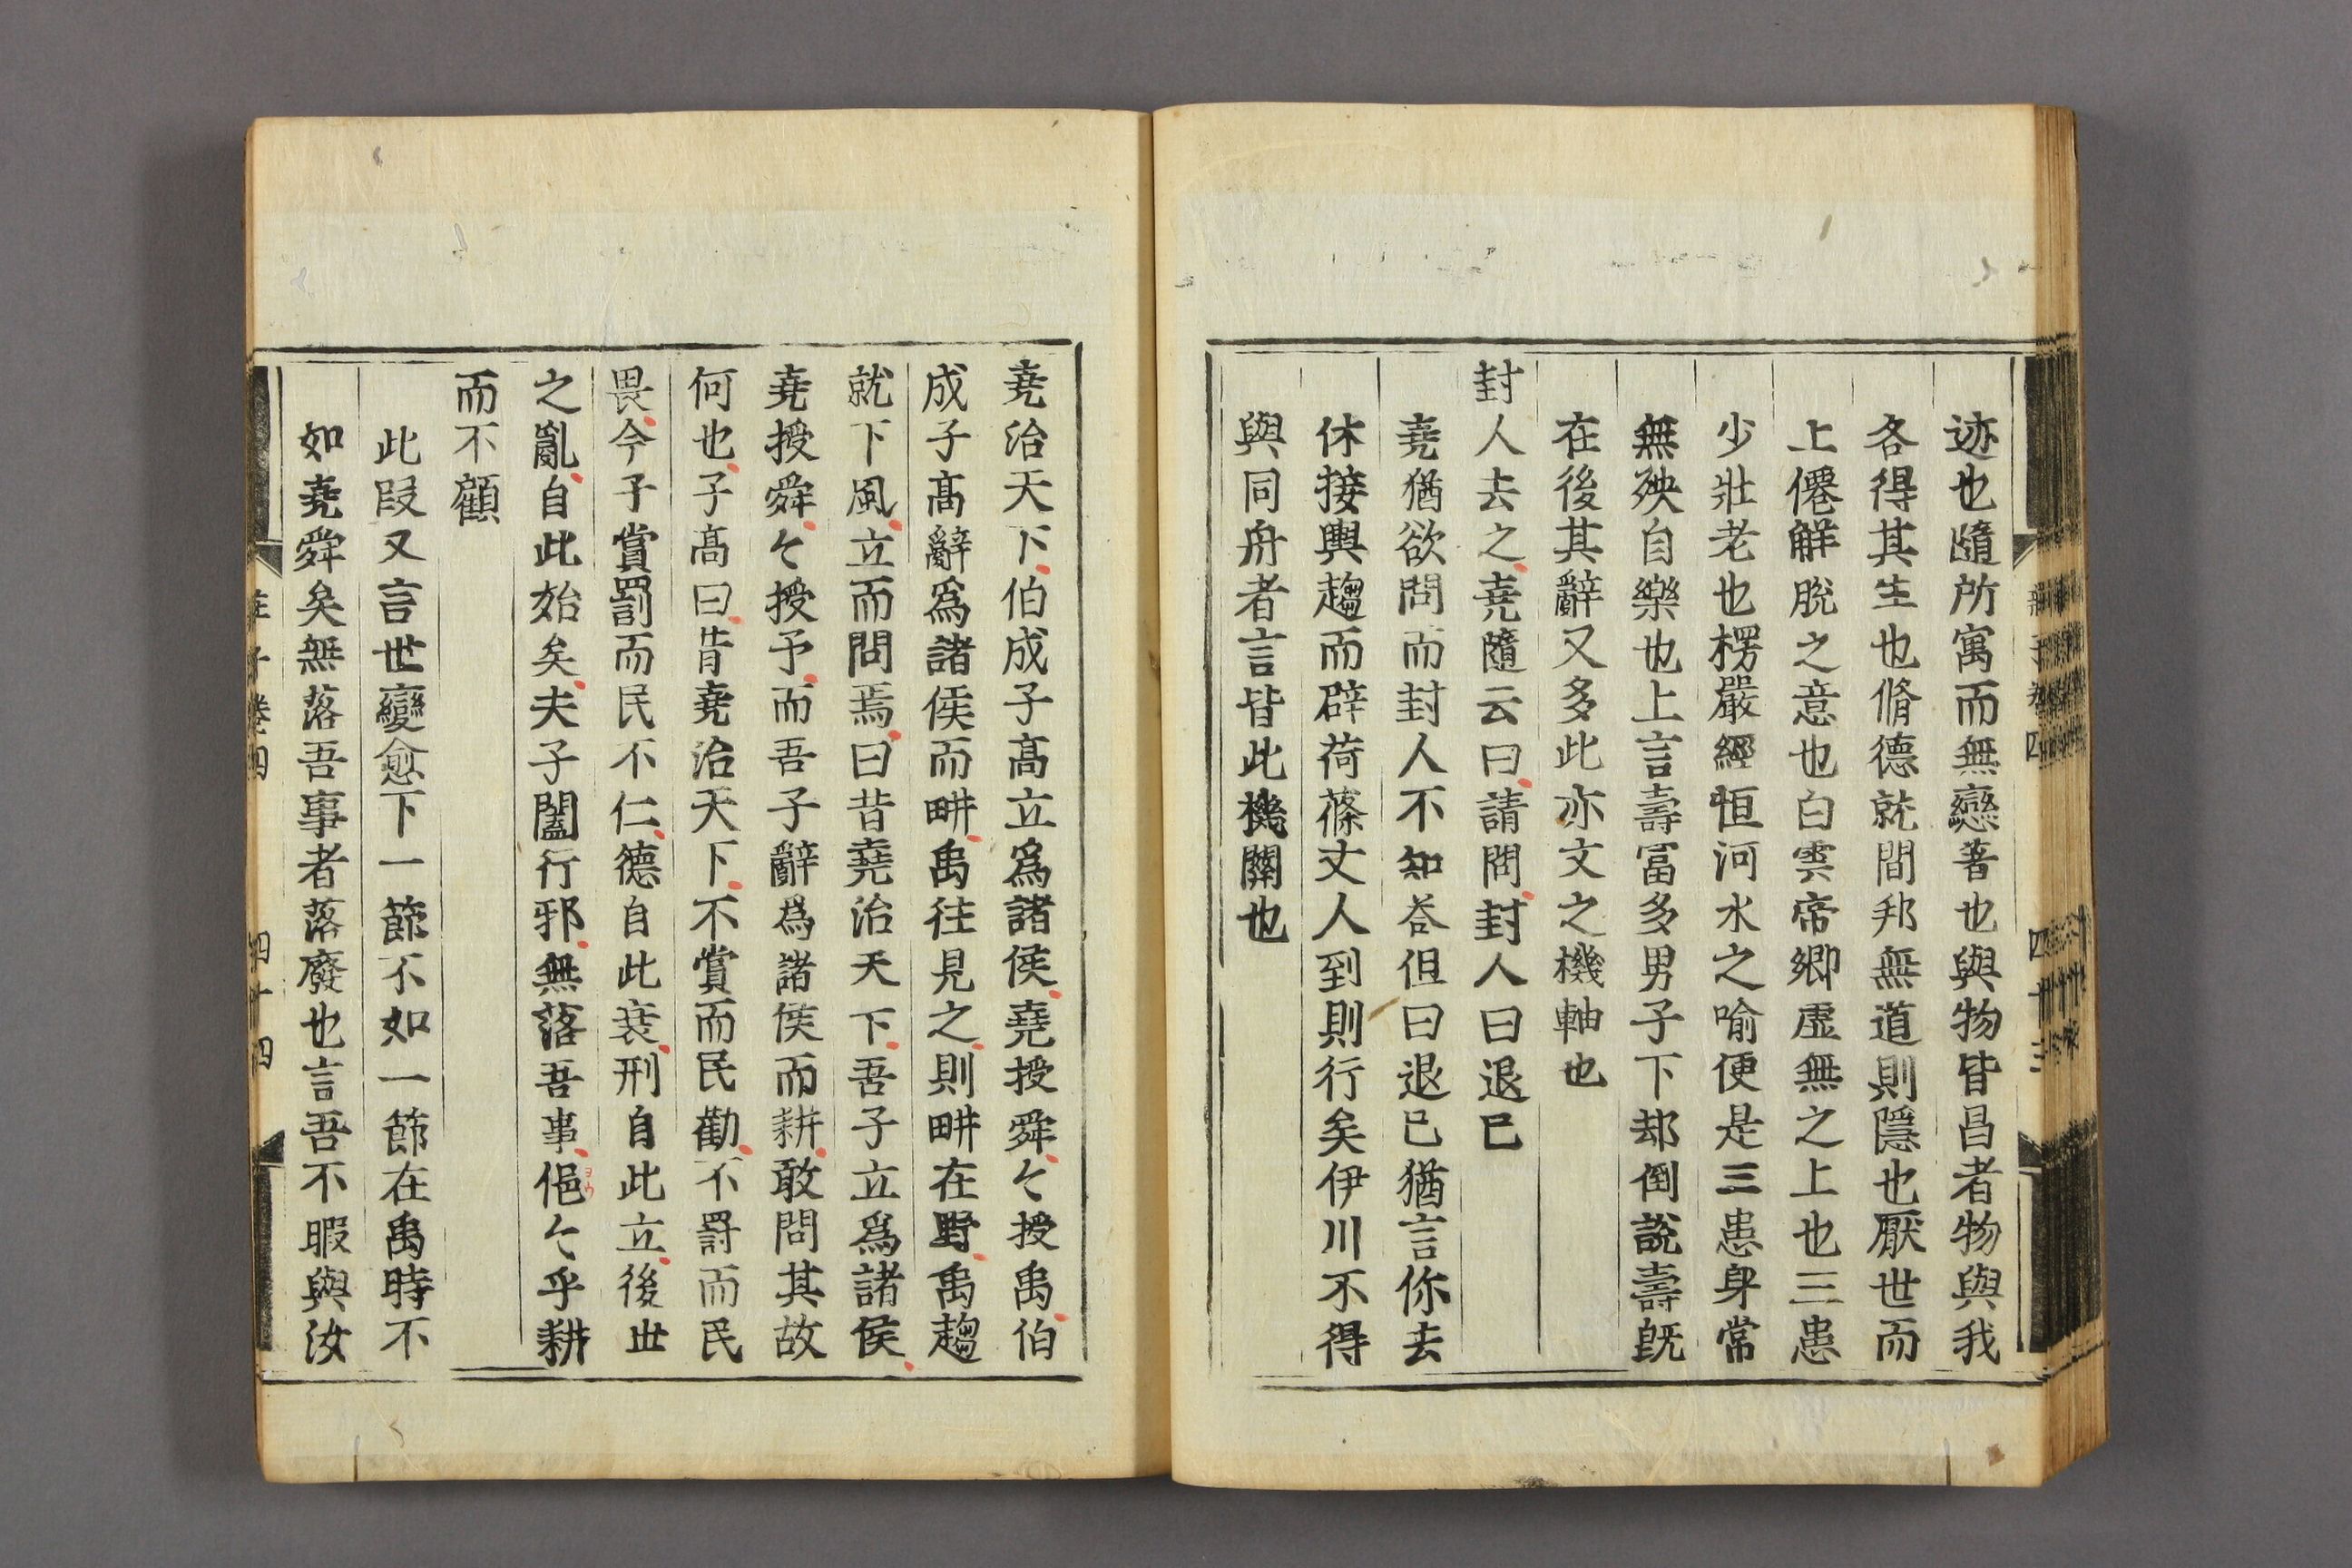 迹也隨所寓而無戀著也與物皆昌者物與我
各得其生也脩德就間邦無道則隱也厭世而
上僊解脫之意也白雲帝鄉虛無之上也三患
少壯老也楞嚴經恒河水之喻便是三患身常
無殃自樂也上言壽冨多男子下却倒說壽既
在後其辭又多此亦文之機軸也
封人去之堯隨云曰請問封人曰退已
堯猶欲問而封人不知荅但曰退已猶言你去
休接輿趨而辟荷蓧丈人到則行矣伊川不得
與同舟者言皆此機關也
堯治天下伯成子髙立爲諸侯堯授舜〻授禹伯
成子髙辭爲諸侯而畊禹往見之則畊在野禹趨
就下風立而問焉曰昔堯治天下吾子立爲諸侯
堯授舜〻授予而吾子辭爲諸侯而耕敢問其故
何也子髙曰昔堯治天下不賞而民勸不罸而民
畏今子賞罰而民不仁德自此衰刑自此立後世
之亂自此始矣夫子闔行邪無落吾事俋〻乎耕
而不顧
此段又言世變愈下一節不如一節在禹時不
如堯舜矣無落吾事者落廢也言吾不暇與汝
莊子卷四 四十四